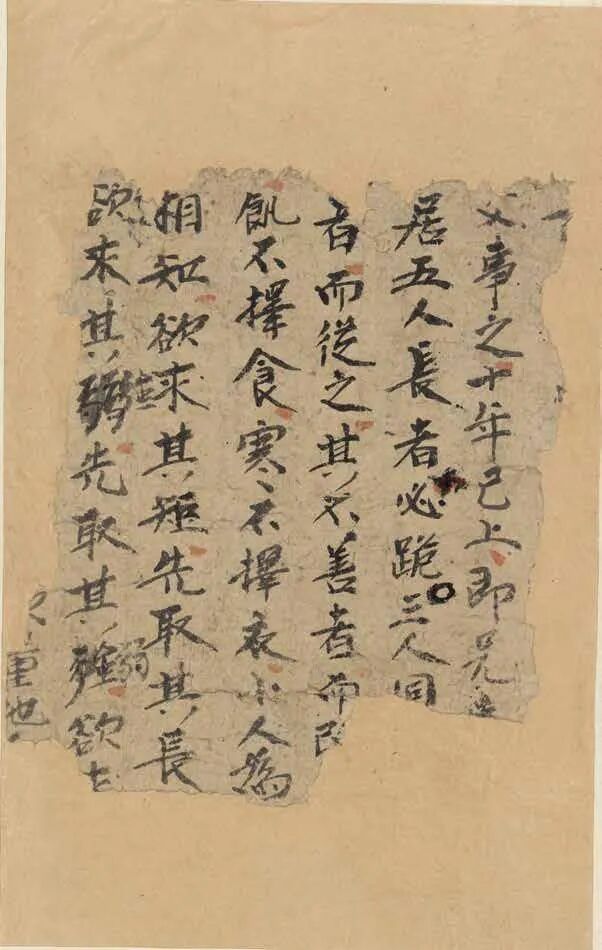 父事之十年已上即兄
居五人長者必跪三人同
者而從之其不善者而改
飢不擇食寒不擇衣小人為
相知欲求其矩先取其長
欲求其弱先取其強欲
重也